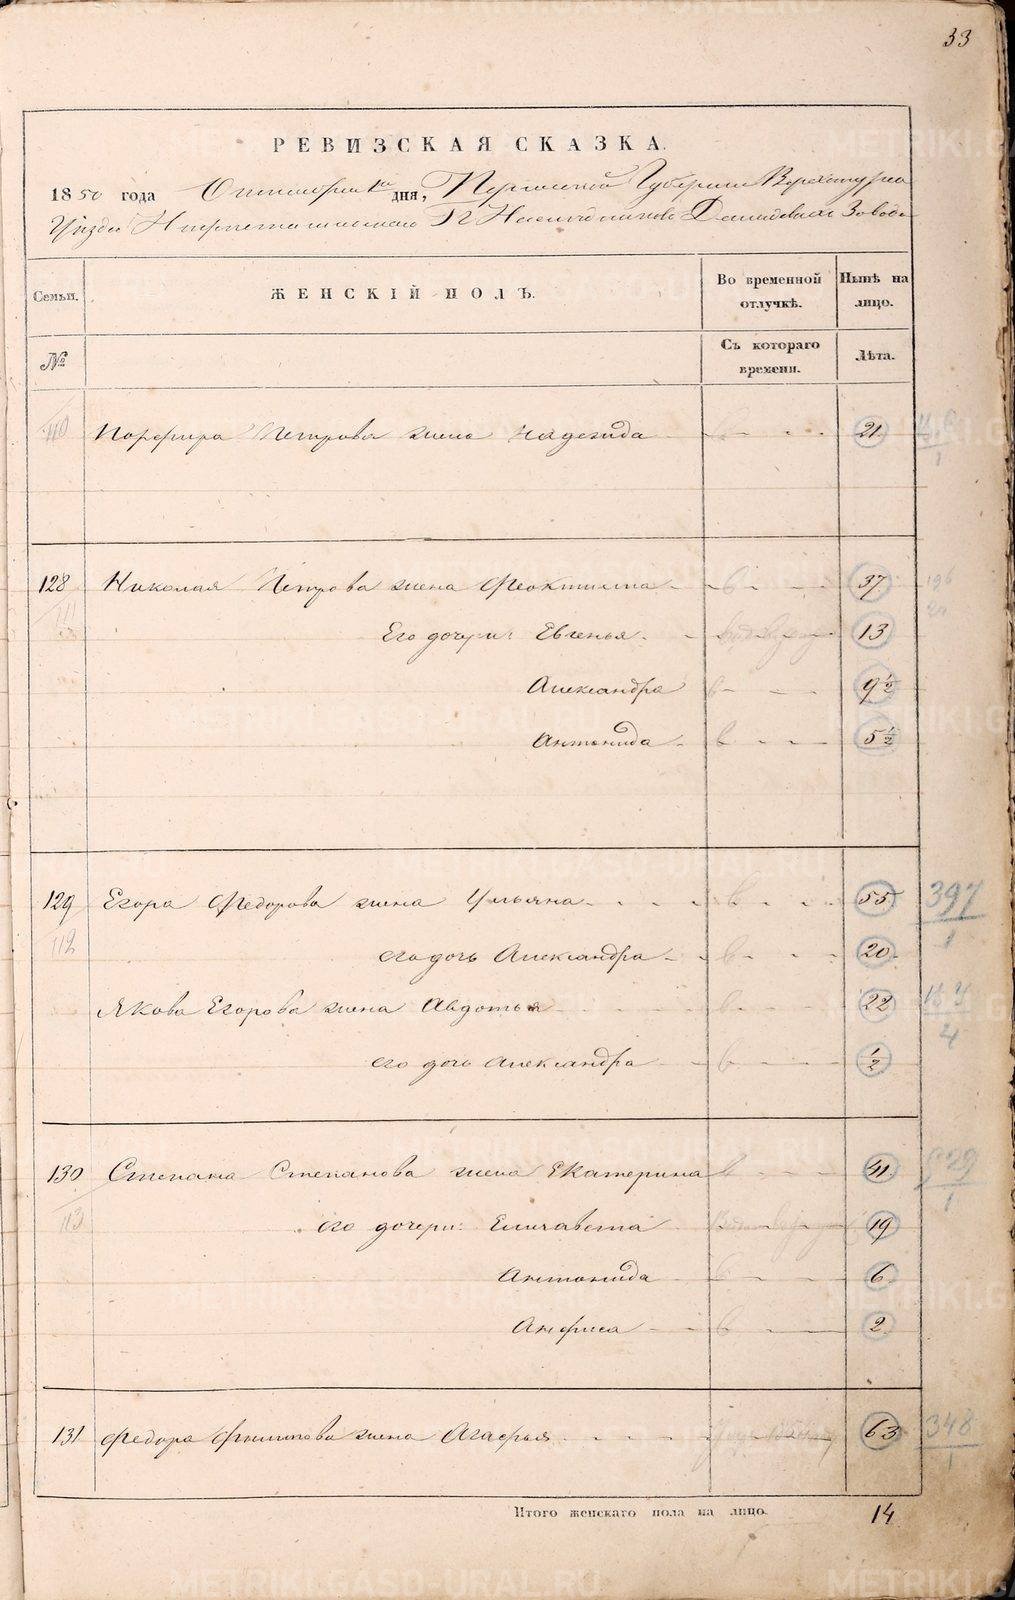 33
РЕВИЗСКАЯ СКАЗКА.
1850 года Октября 1го дня, Пермской Губернии Верхотурскаго
Уѣзда Нижнетагильскаго Гг Наслѣдниковъ Демидовыхъ Завода
Семьи. ЖЕНСКІЙ ПОЛЪ. Во временной отлучкѣ. Нынѣ на лицо.
№ Съ котораго времени. Лѣта.
110 Порфира Петрова жена Надежда 21
128 Николая Петрова жена Феоктиста в 37
111 Его дочери: Евгенья 13
Александра в 9½
Антонида в 5½
129 Егора Федорова жена Ульяна в 55 397/1
112 его дочь Александра в 20
Якова Егорова жена Авдотья в 22
его дочь Александра в ½
130 Степана Степанова жена Екатерина в 41
113 его дочери: Елизавета 19
Антонида в 6
Анфиса в 2
131 Федора Филипова жена Агафья 63 348/1
Итого женскаго пола на лицо. 14
METRIKI.GASO-URAL.RU